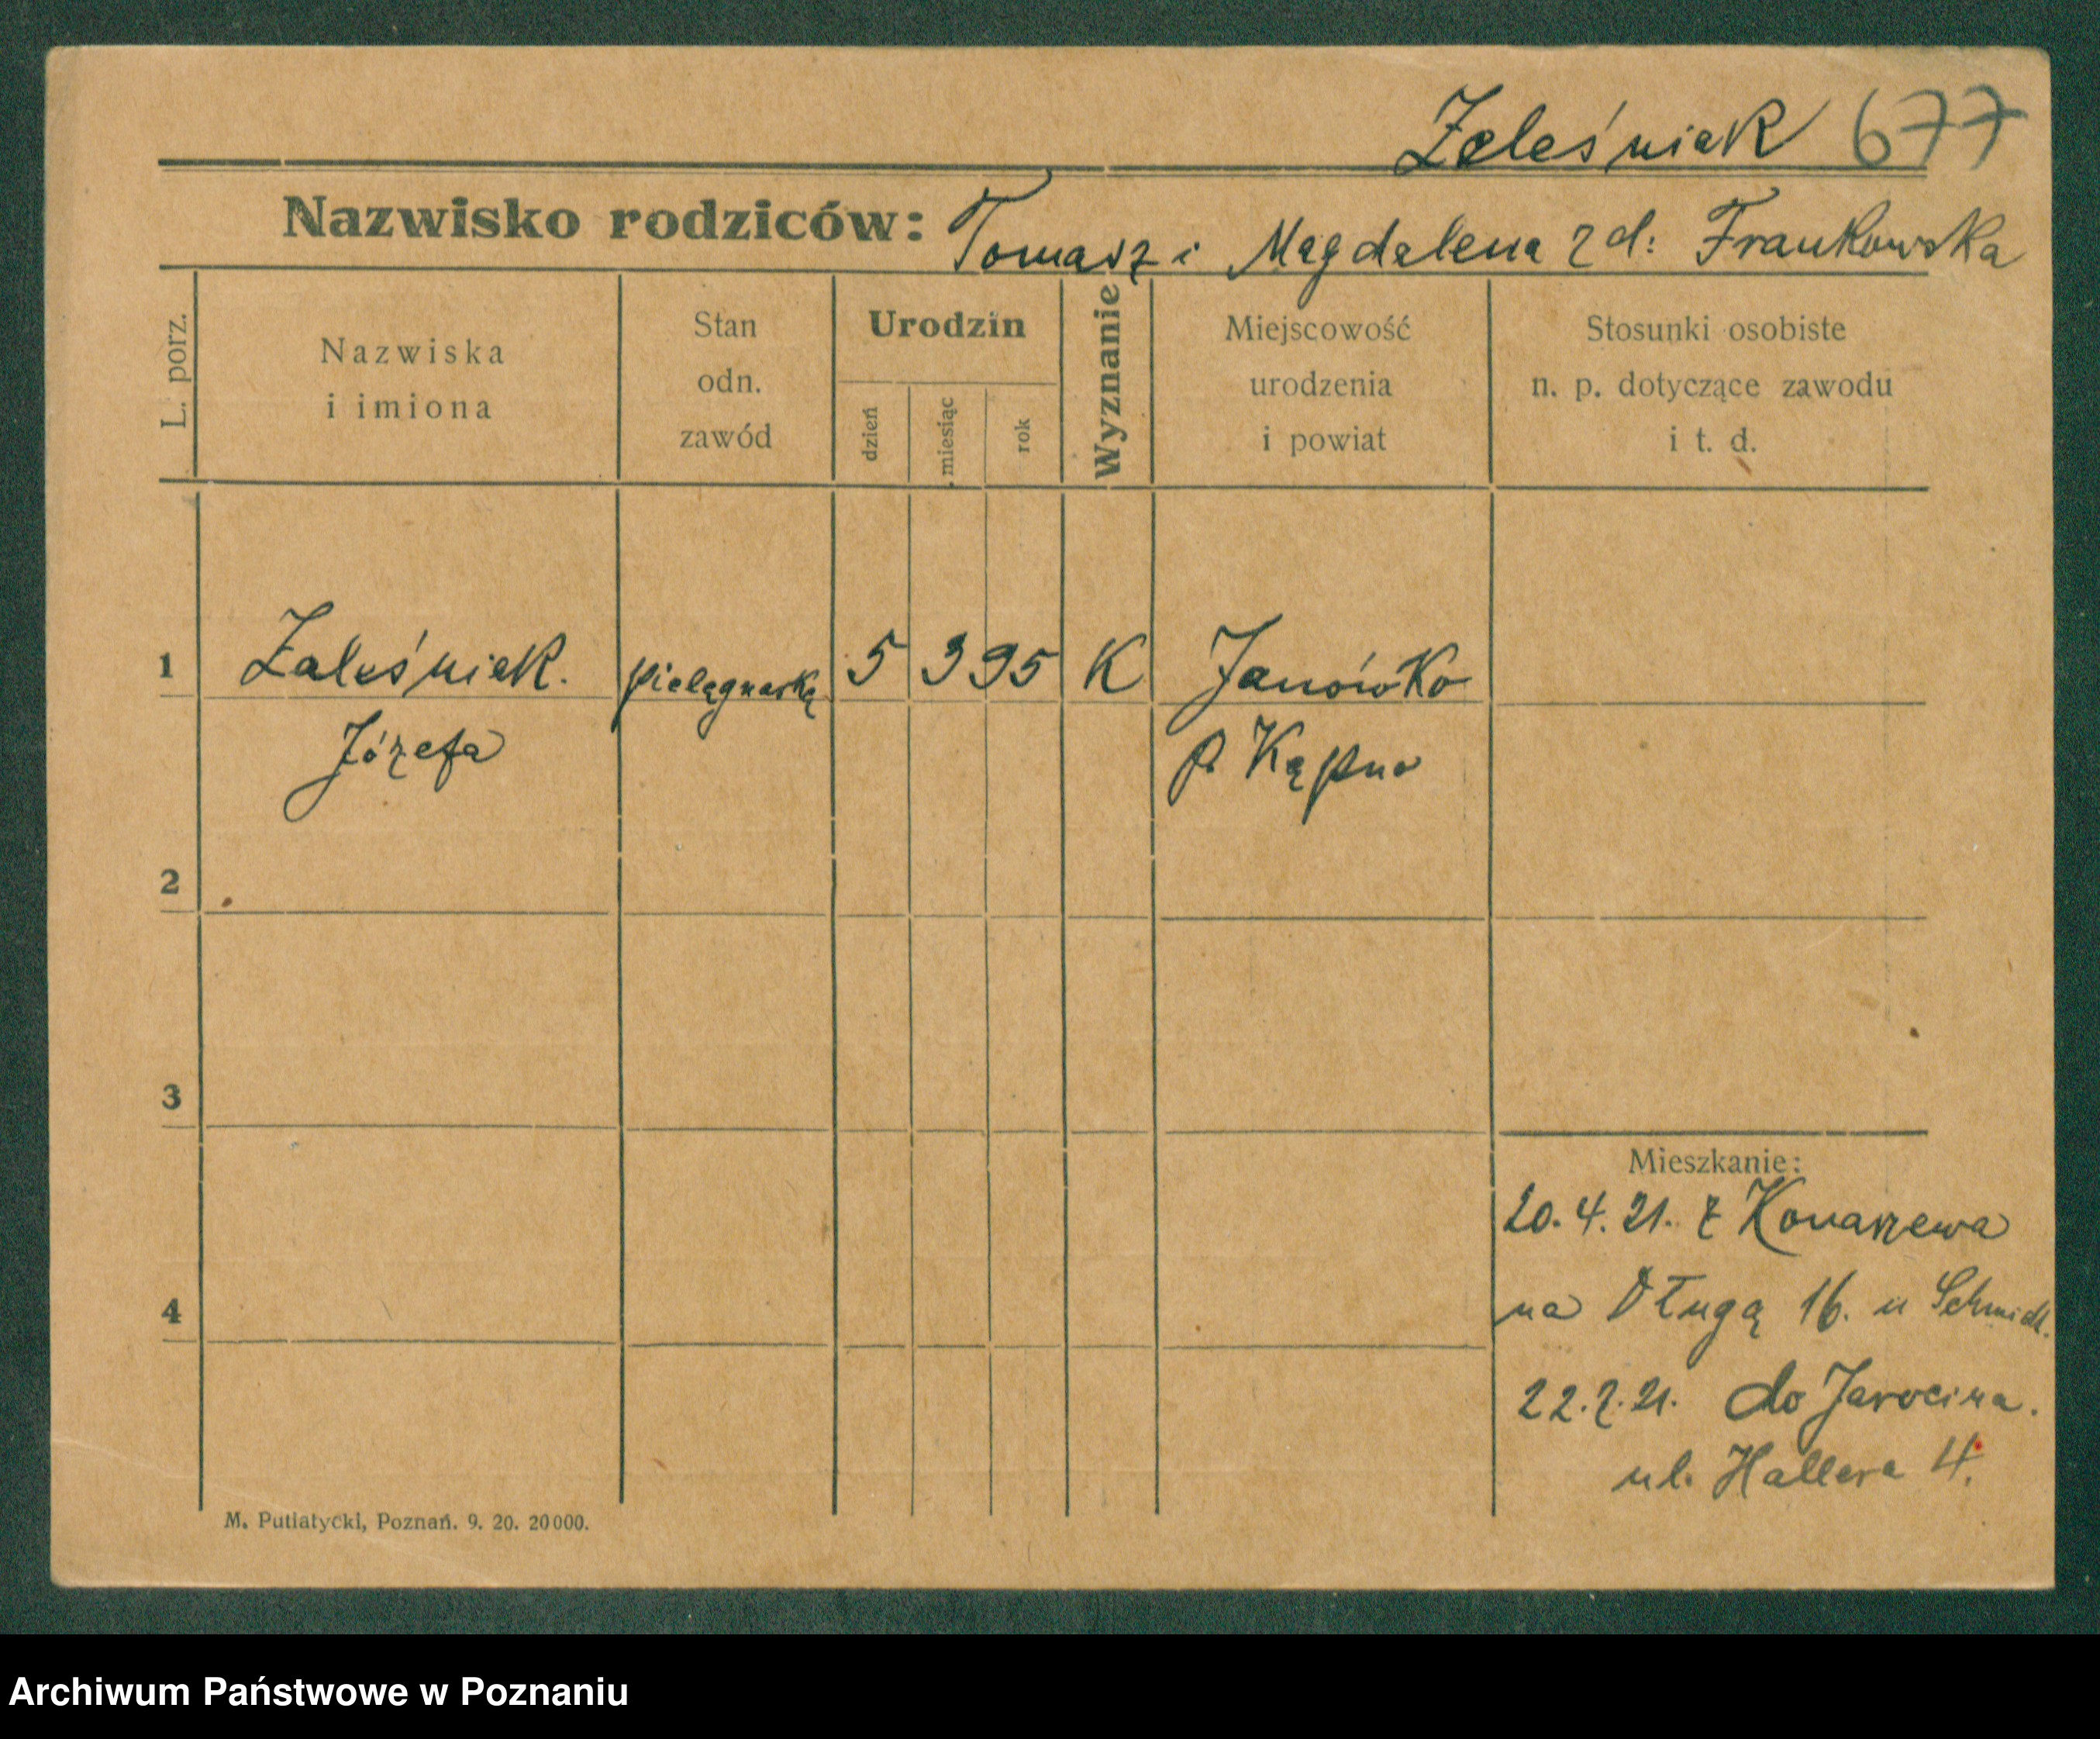 Zaleśniak 677
Nazwisko rodziców: Tomasz i Magdalena z d: Frankowska
L. porz.
Nazwiska
i imiona
Stan
odn.
zawód
Urodzin
dzień
miesiąc
rok
Wyznanie
Miejscowość
urodzenia
i powiat
Stosunki osobiste
n. p. dotyczące zawodu
i t. d.
1 Zaleśniak. pielęgnarką 5 3 95 K Janówko
Józefa p. Kępno
2
3
Mieszkanie:
20. 4. 21. z Konarzewa
4 na Długą 16. u Schmidt.
22. 7. 21. do Jarocina.
ul. Hallera 4.
M. Putiatycki, Poznań. 9. 20. 20000.
Archiwum Państwowe w Poznaniu